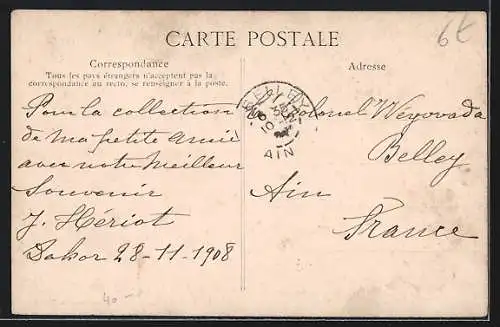 CARTE POSTALE
6t
Correspondance
Tous les pays étrangers n'acceptent pas la
correspondance au recto, se renseigner à la poste.
Adresse
Pour la collection
de ma petite amie
avec notre meilleur
Souvenir
J. Hériot
Dakar 28-11-1908
BELLEY
AIN
Colonel Wéyovada
Belley
Ain
France
40-